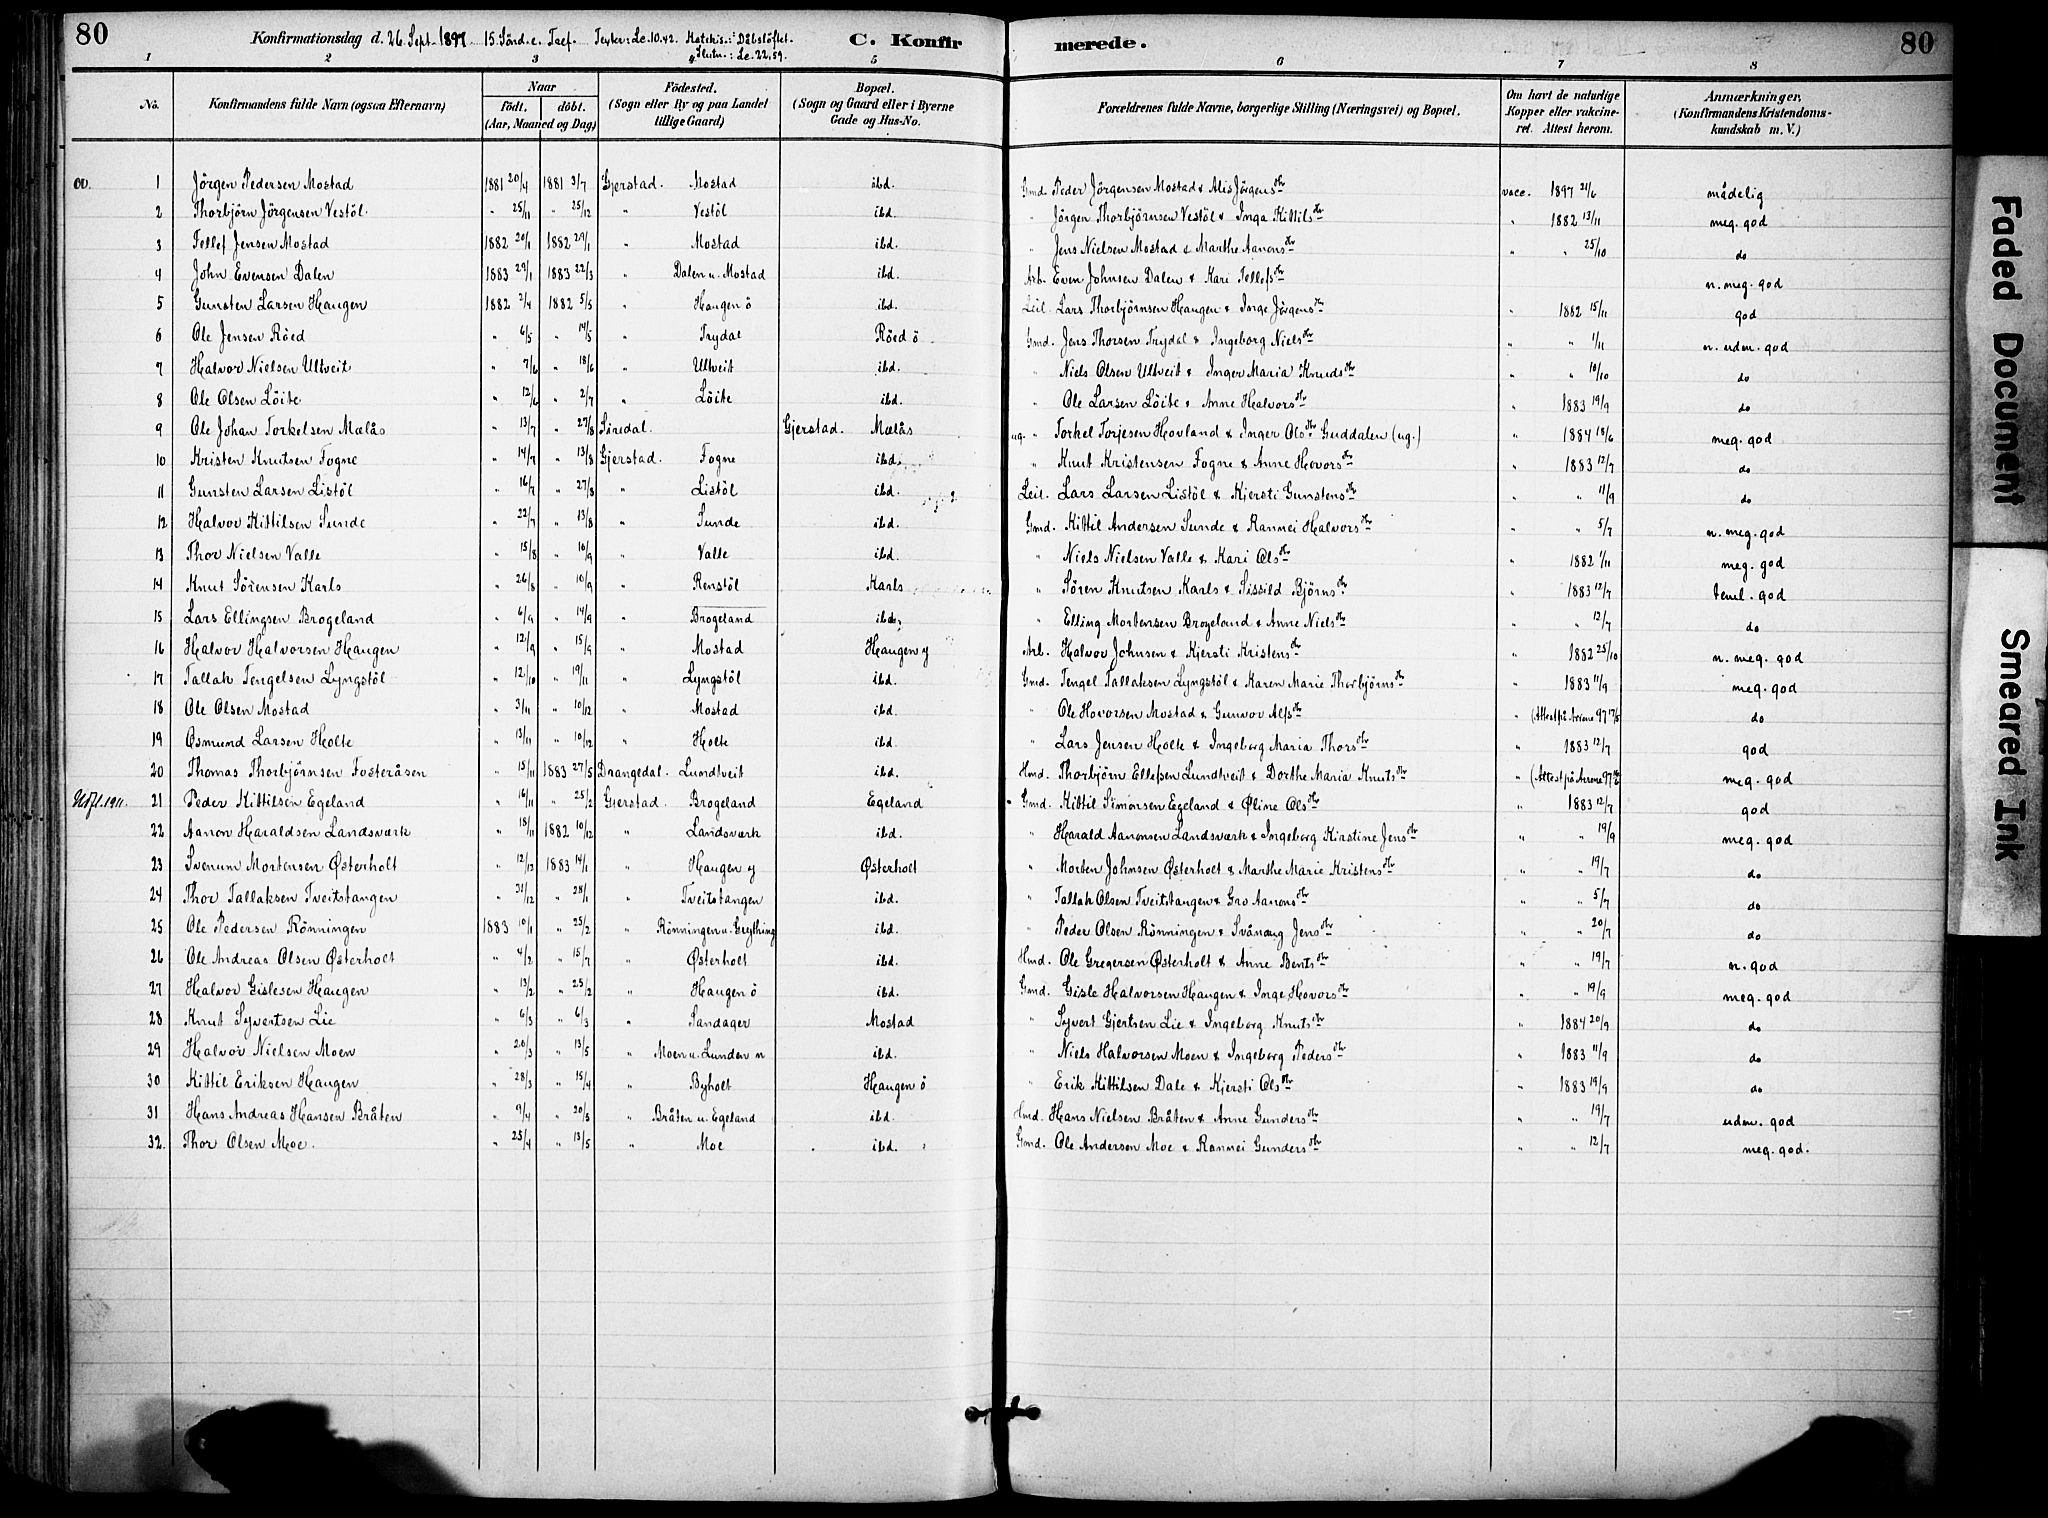 80 Konfirmationsdag d. 26 Sept. 1897 15. Sönd. e. Tref. Texter: Lc. 10.42. Katekis.: Dåbslöftet. C. Konfirmerede. 80
Slutn.: Lc. 22,59.
1 2 3 4 5 6 7 8
No. Konfirmandens fulde Navn (ogsaa Efternavn) Naar födt. döbt. (Aar, Maaned og Dag) Födested. (Sogn eller By og paa Landet tillige Gaard) Bopæl. (Sogn og Gaard eller i Byerne Gade og Hus-No. Forældrenes fulde Navne, borgerlige Stilling (Næringsvei) og Bopæl. Om havt de naturlige Kopper eller vakcineret. Attest herom. Anmærkninger, (Konfirmandens Kristendomskundskab m. V.)
1 Jörgen Pedersen Mostad 1881 20/4 1881 3/7 Gjerstad. Mostad ibd. Gmd. Peder Jörgensen Mostad & Alis Jörgensdtr vacc. 1897 21/6 mådelig
2 Thorbjörn Jörgensen Vestöl " 25/11 " 25/12 " Vestöl ibd. " Jörgen Thorbjörnsen Vestöl & Inga Kittilsdtr " 1882 13/11 meg. god
3 Tellef Jensen Mostad 1882 20/1 1882 29/1 " Mostad ibd. " Jens Nielsen Mostad & Marthe Aanonsdtr " " 25/10 do
4 John Evensen Dalen 1883 29/1 1883 22/3 " Dalen u. Mostad ibd. Arb. Even Johnsen Dalen & Kari Tellefsdtr n. meg. god
5 Gunsten Larsen Haugen 1882 2/4 1882 5/5 " Haugen ö ibd. Leil. Lars Thorbjörnsen Haugen & Inge Jörgensdtr " 1882 15/11 god
6 Ole Jensen Röed " 6/5 " 14/5 " Trydal Röed ö Gmd. Jens Thorsen Trydal & Ingeborg Nielsdtr " " 1/11 n. uden. god
7 Halvor Nielsen Ultveit " 7/6 " 18/6 " Ultveit ibd. " Niels Olsen Ultveit & Inger Maria Knudsdtr " " 10/10 do
8 Ole Olsen Löite " 12/6 " 2/7 " Löite ibd. " Ole Larsen Löite & Anne Halvorsdtr " 1883 19/9 do
9 Ole Johan Torkelsen Mælås " 13/7 " 27/8 Siredal. Gjerstad. Mælås ug. " Torkel Torjesen Hovland & Inger Olsdtr Guddalen (ug.) " 1884 18/6 meg. god
10 Kristen Knutsen Fogne " 14/7 " 13/8 Gjerstad. Fogne ibd. " Knut Kristensen Fogne & Anne Hovorsdtr " 1883 12/7 do
11 Gunsten Larsen Listöl " 16/7 " 27/8 " Listöl ibd. Leil. Lars Larsen Listöl & Kjersti Gunstensdtr " " 11/9 do
12 Halvor Kittilsen Sunde " 22/7 " 13/8 " Sunde ibd. Gmd. Kittil Andersen Sunde & Rannei Halvorsdtr " " 5/7 n. meg. god
13 Thor Nielsen Valle " 15/8 " 10/9 " Valle ibd. " Niels Nielsen Valle & Kari Olsdtr " 1882 1/11 meg. god
14 Knut Sörensen Karls " 26/8 " 10/9 " Renstöl Karls " Sören Knutsen Karls & Sissild Björnsdtr " 1883 12/7 temt. god
15 Lars Ellingsen Brogeland " 6/9 " 14/9 " Brogeland ibd. " Elling Mortensen Brogeland & Anne Nielsdtr " " 12/7 do
16 Halvor Halvorsen Haugen " 12/9 " 15/9 " Mostad Haugen y Arb. Halvor Johnsen & Kjersti Kristensdtr " 1882 25/10 n. meg. god
17 Tallak Tengelsen Lyngstöl " 12/10 " 19/11 " Lyngstöl ibd. Gmd. Tengel Tallaksen Lyngstöl & Karen Marie Thorbjörnsdtr " 1883 11/9 meg. god
18 Ole Olsen Mostad " 3/11 " 10/12 " Mostad ibd. " Ole Hovorsen Mostad & Gunvor Alfsdtr " (Attest på Arrene 97 17/5 do
19 Osmund Larsen Holte " 13/11 " 10/12 " Holte ibd. " Lars Jensen Holte & Ingeborg Maria Thorsdtr " 1883 12/7 god
20 Thomas Thorbjörnsen Fosteråsen " 15/11 1883 27/5 Drangedal. Lundtveit ibd. Hmd. Thorbjörn Ellefsen Lundtveit & Dorthe Maria Knutsdtr " (Attest på Arrene 97 meg. god
Udfl. 1911. 21 Peder Kittilsen Egeland " 16/11 " 25/2 Gjerstad. Brogeland Egeland Gmd. Kittil Simonsen Egeland & Oline Olsdtr " 1883 12/7 god
22 Aanon Haraldsen Landsværk " 18/11 1882 10/12 " Landsværk ibd. " Harald Aanonsen Landsværk & Ingeborg Kirstine Jensdtr " " 19/9 meg. god
23 Svenum Mortensen Østerholt " 12/12 1883 14/1 " Haugen y Østerholt " Morten Johnsen Østerholt & Marthe Marie Kristensdtr " " 19/7 do
24 Thor Tallaksen Tveitstangen " 31/12 " 28/1 " Tveitstangen ibd. " Tallak Olsen Tveitstangen & Gro Aanonsdtr " " 5/7 do
25 Ole Pedersen Rönningen 1883 10/1 " 25/2 " Rönningen u. Gryting ibd. " Peder Olsen Rönningen & Svånaug Jensdtr " " 20/7 do
26 Ole Andreas Olsen Østerholt " 4/2 " 15/7 " Østerholt ibd. Hmd. Ole Gregersen Østerholt & Anne Bentsdtr " " 19/7 n. god
27 Halvor Gislesen Haugen " 13/2 " 25/2 " Haugen ö ibd. Gmd. Gisle Halvorsen Haugen & Inge Hovorsdtr " " 19/9 meg. god
28 Knut Syvertsen Lie " 6/3 " 6/3 " Sandager Mostad " Syvert Gjertsen Lie & Ingeborg Knutsdtr " 1884 20/9 do
29 Halvor Nielsen Moen " 20/3 " 13/5 " Moen u. Lunden n ibd. " Niels Halvorsen Moen & Ingeborg Pedersdtr " 1883 11/9 do
30 Kittil Eriksen Haugen " 28/3 " 15/4 " Byholt Haugen ö " Erik Kittilsen Dale & Kjersti Olsdtr " 1883 19/9 do
31 Hans Andreas Hansen Bråten " 9/4 " 20/5 " Bråten u. Egeland ibd. Hmd. Hans Nielsen Bråten & Anne Gundersdtr " " 19/7 uden. god
32. Thor Olsen Moe. " 25/4 " 13/5 " Moe ibd. Gmd. Ole Andersen Moe & Rannei Gundersdtr " " 12/7 meg. god.
Faded Document
Smeared Ink